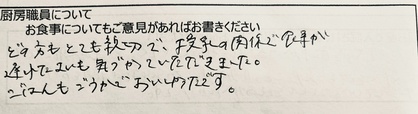 厨房職員について
お食事についてもご意見があればお書きください
どの方もとても親切で、授乳の関係で食事が
遅れてしまいも気づかっていただきました。
ごはんもごうかでおいしかったです。